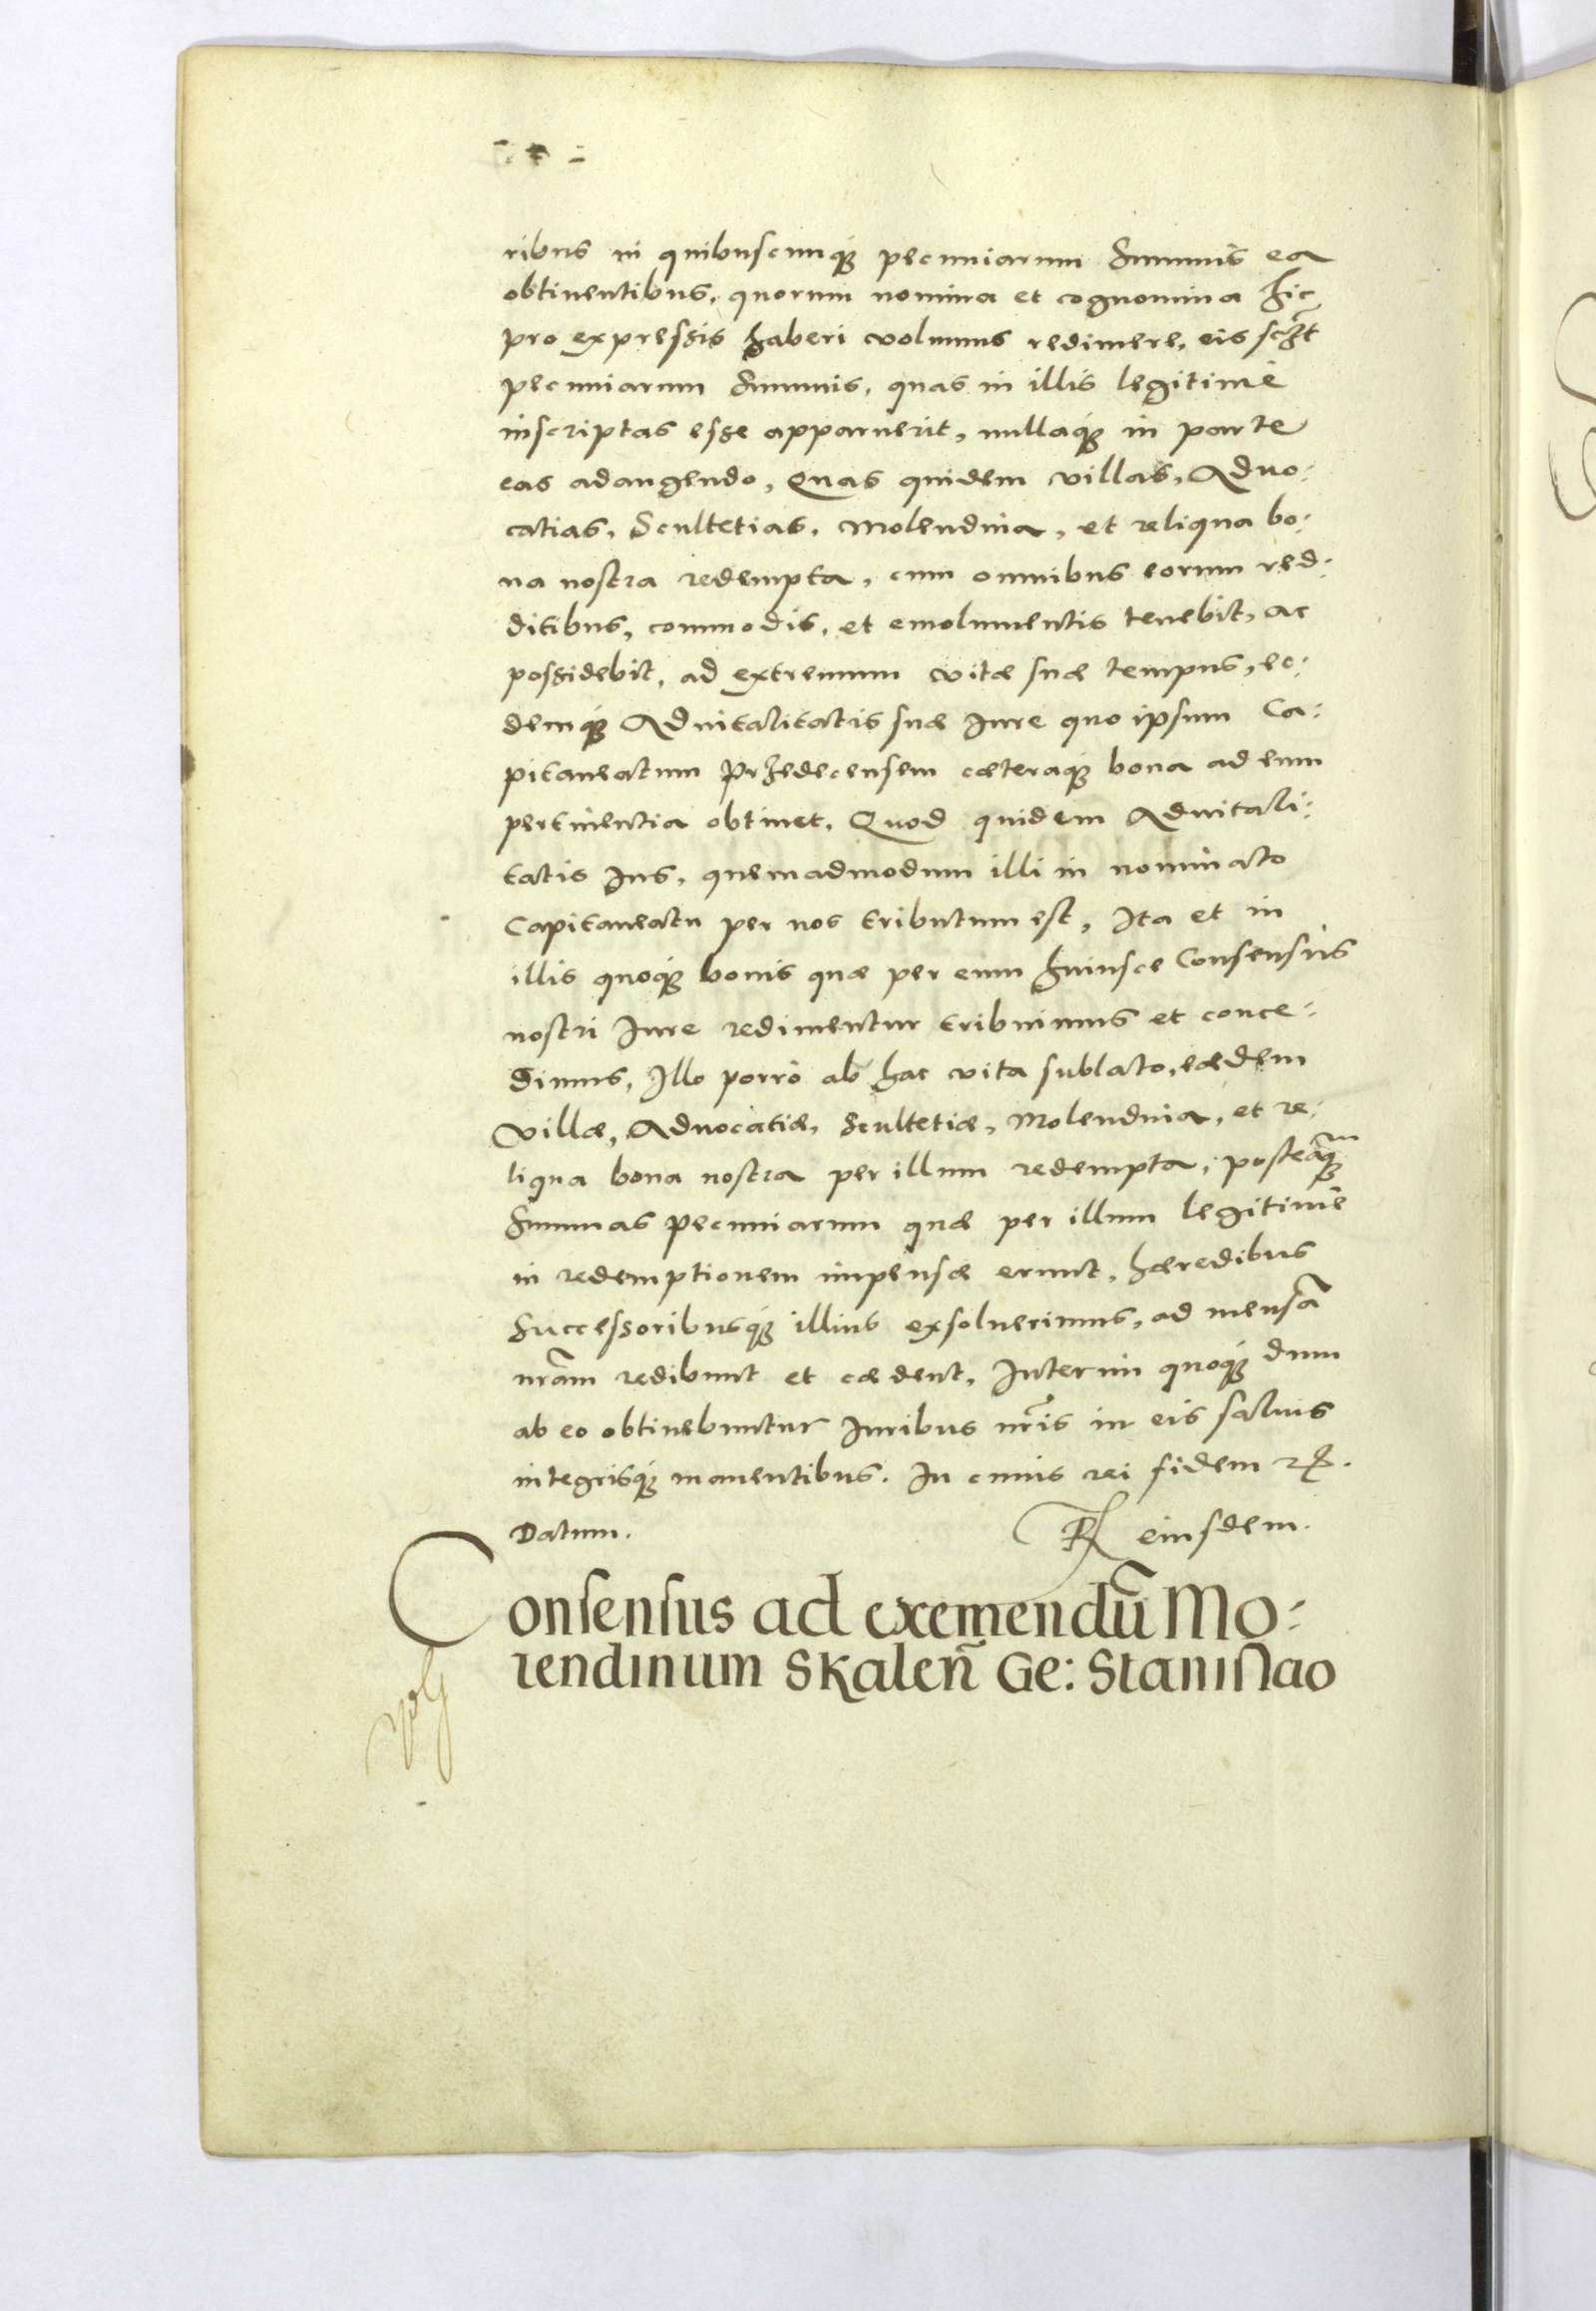 ribus in quibuscunq; pecuniarum summis ea
obtinentibus, quorum nomina et cognomina hic
pro expressis haberi volumus redimere, eis sc̃ʒt
pecuniarum summis, quas in illis legitimè
inscriptas esse apparuerit, nullaq; in parte
eas adaugendo, Quas quidem villas, Aduo:
catias, Scultetias, Molendina, et reliqua bo:
na nostra redempta, cum omnibus eorum red:
ditibus, commodis, et emolumentis tenebit, ac
possidebit, ad extremum vitæ suæ tempus, eo:
demq; Aduitalitatis suæ Iure quo ipsum Ca:
pitaneatum Przedecensem cæteraq; bona ad eum
pertinentia obtinet. Quod quidem Aduitali:
tatis Ius, quemadmodum illi in nominato
Capitaneatu per nos tributum est, Ita et in
illis quoq; bonis quæ per eum huiusce Consensus
nostri Iure redimentur tribuimus et conce:
dimus, Illo porrò ab hac vita sublato, eædem
Villæ, Aduocatiæ, Scultetiæ, Molendina, et re:
liqua bona nostra per illum redempta, posteaq̃;m
Summas pecuniarum quæ per illum legitimè
in redemptionem impensæ erunt, hæredibus
Successoribusq; illius exsoluerimus, ad mensã
nr̃am redibunt et cædent, Interim quoq; dum
ab eo obtinebuntur Iuribus nr̃is in eis saluis
integrisq; manentibus. In cuius rei fidem ꝛc.
Datum. Rx eiusdem.
Consensus ad exemendũ Mo:
lendinum Skaleñ Ge: Stanislao